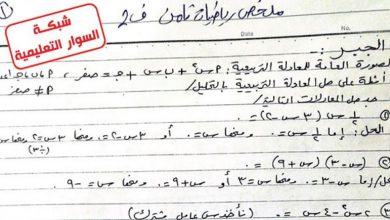 ملخص رياضيات ثامن ف2
①
شبكة
السوار التعليمية
Date
No
الجبر :-
الصورة العامة للمعادلة التربيعية : م س² + ب س + جـ = صفر ،
م ≠ صفر
أمثلة على حل المعادلة التربيعية بالتحليل /
جد حل المعادلات التالية /
① ½ س (٣س - ٢) = ٠
الحل : إما ½ س = ٠ ومنها س = ٠ أو ٣س - ٢ = ٠ ومنها ٣س = ٢ ومنها
② (س - ٣) (س + ٩) = ٠
الحل / إما س - ٣ = ٠ ومنها س = ٣ أو س + ٩ = ٠ ومنها س = - ٩
③ ٢س² - ٤س = ٠ (نأخذ س عامل مشترك)